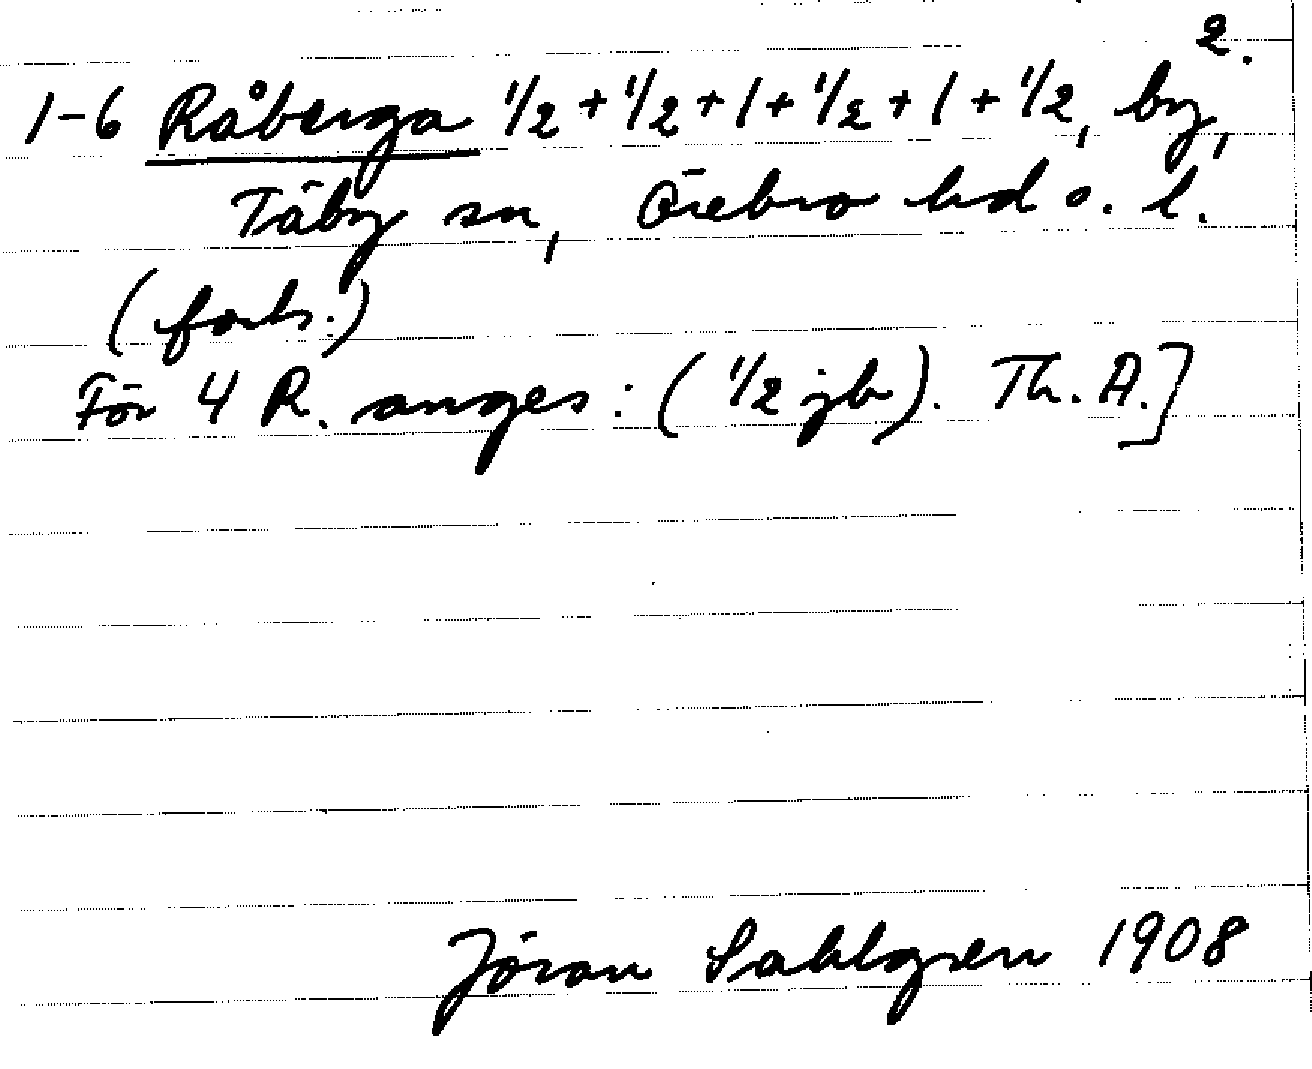 2.
1-6 Råberga 1/2 + 1/2 + 1 + 1/2 + 1 + 1/2, by,
Täby sn, Örebro hd o. l.
(forts.)
För 4 R. anges: (1/2 jb). Th. A.]
Jöran Sahlgren 1908